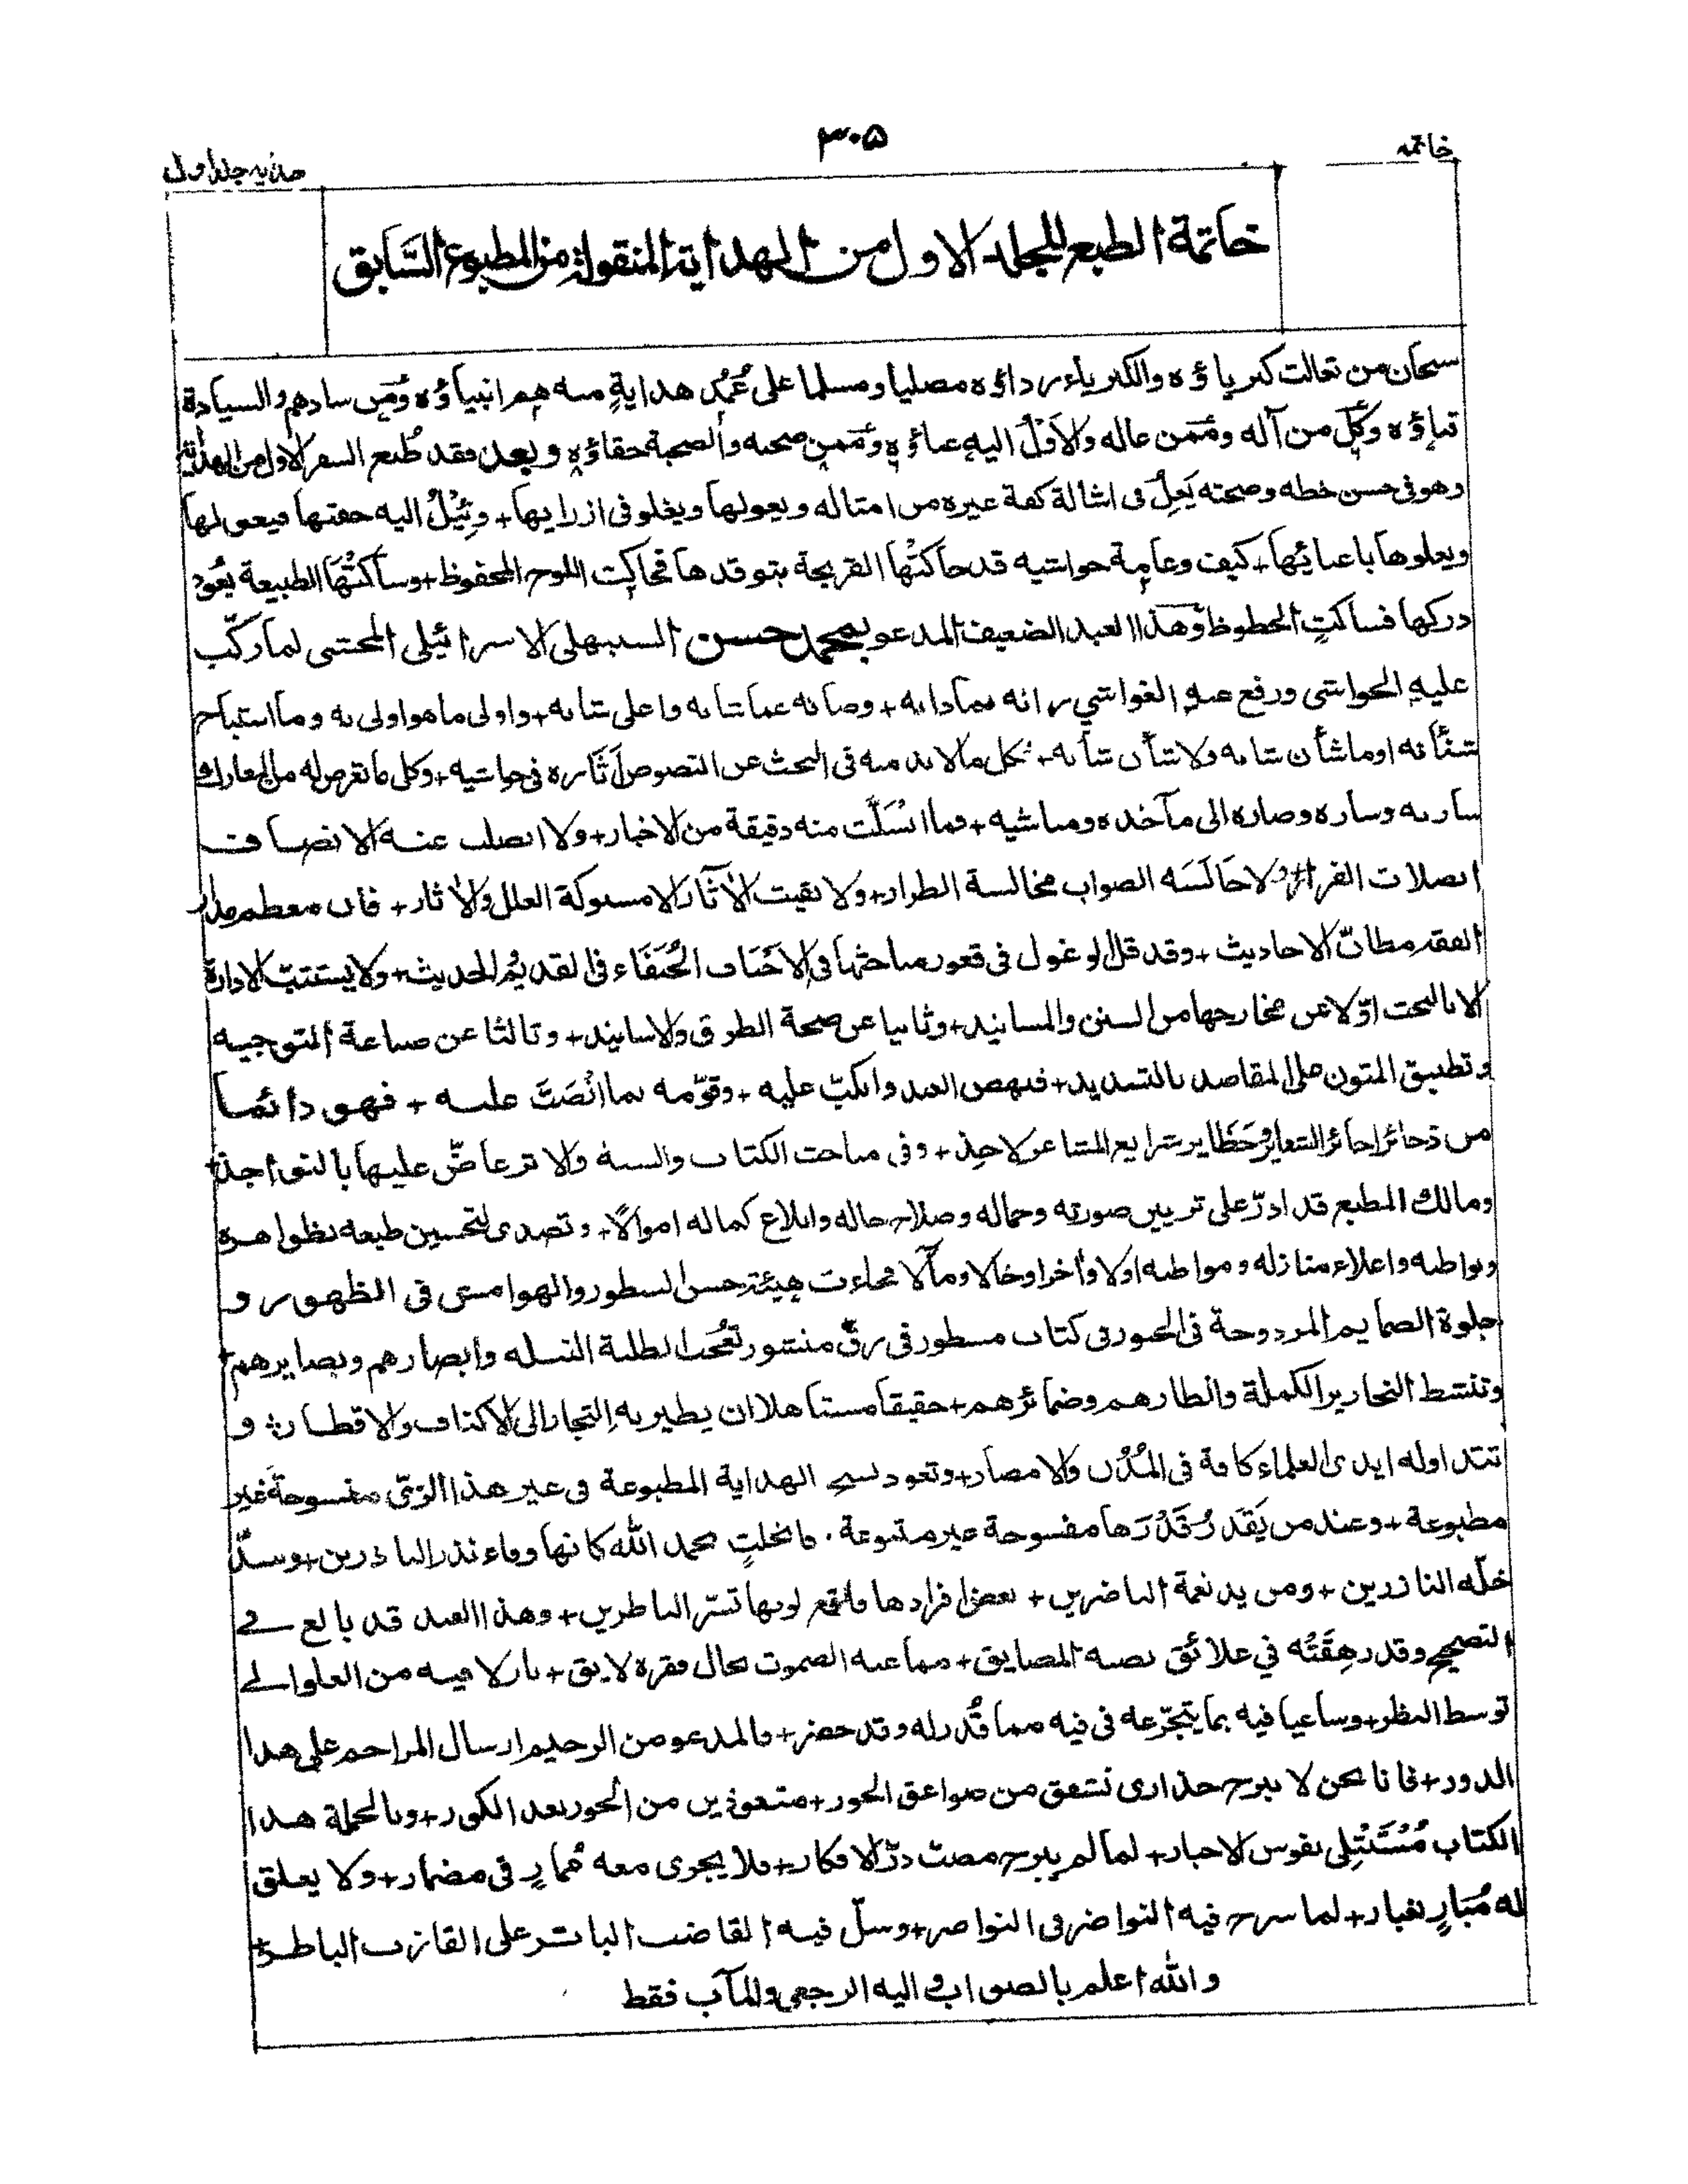 خاتمه
٣٠۵
هدایه جلد اول
خاتمة الطبع للمجلد الاول من الهداية المنقولة من المطبوع السَّابق
سبحان من تعالت كبرياؤه والكبرياء رداؤه مصليا ومسلما على عُمُد هداية منه هم انبياؤه ومَن سادهم والسيادة
وكُل من آله وممن عاله والاَوْل اليه عباؤه وممن صحبه والصحبة حقاؤه وبعد فقد طُبع السفر الاول من الهداية
وهو فى حسن خطه وصحته يَعِلُ فى اشالة كفة غيره من امثاله ويعولها ويغلو فى ازرايها+ اليه حفتها فيعولها
ويعلوها باعبائها+ كيف وعامة حواشيه قد حاكتْها القريحة بتوقدها فحاكت اللوح المحفوظ+ وساكتْها الطبيعة
دركها فساكتِ الحظوظ وهذا العبد الضعيف المدعو بمحمد حسن السنبهلى الاسرائيلى المحشى لما ركّب
عليه الحواشى ورفع عنه الغواشي زانه بما دانه+ وصانه عما شانه واعلى شانه+ واولى ما هو اولى به وما استباح
شنأنه او ما شأن شانه ولا شأن شأنه+ فكل ما لا بد منه فى البحث عن النصوص اَثاره فى حاشيه+ وكل ما تعرض له من المعارك
ساربه وساره وصاره الى مآخذه ومناشيه+ فما انْسَلَّت منه دقيقة من الاخبار+ ولا انصلت عنه الا نصاف
انصلات الفرار+ ولا خَالَسَه الصواب مخالسة الطرار+ ولا بقيت الآثار الا مسبوكة العلل والاٰثار+ فان معظم مدار
الفقه مظانّ الاحاديث+ وقد قل الوغول فى قعور مباحثها فى الاَحْنَاف الحُنَفَاء فى القديم والحديث+ ولا يستتب الادارة
الا بالبحث اوّلا عن مخارجها من السنن والمسانيد+ وثانيا عن صحة الطرق والاسانيد+ وثالثا عن صناعة التوجيه
وتطبيق المتون على المقاصد بالتسديد+ فنهض العبد وانكبّ عليه+ وقوّمه بما انْصَبَّ عليه+ فهو دائما
من ذخائر احائر الشعاير وحَظَاير شرايع المشاعر لاحِذ+ وفى مباحث الكتاب والسنة والا ثر عاضّ عليها بالنواجذ+
ومالك المطبع قد ادرّ على تزيين صورته وجماله وصلاح حاله وابلاغ كماله اموالًا+ وتصدى لتحسين طبعه بظواهره
وبواطنه واعلاء منازله ومواطنه اولا وأخرا وحالا ومآلا فجاءت هيئة حسن السطور والهوامش فى الظهور و
جلوة الضمايم المزدوجة فى الحبور فى كتاب مسطور فى رقّ منشور تعجب الطلبة النبله وابصارهم وبصايرهم+
وتنشط النحارير الكملة وانظارهم وضمائرهم+ حقيقا مستاهلا ان يطير به التجار الى الاكناف والاقطار+ و
تتداوله ايدى العلماء كافة فى المُدُن والامصار+ وتعود نسخ الهداية المطبوعة فى غير هذا الزىّ منسوخة غير
مطبوعة+ وعند من يَقدر قَدْرَها مفسوحة غير متبوعة. فانجلتِ بحمد الله كانها وفاء نذر الناذرين+ وسدّ
خلّه النازرين+ ومن يد نعمة الناضرين+ بعض افرادها فاقع لونها تسرّ الناظرين+ وهذا العبد قد بالغ فے
التصحيح وقد رهِقَتْه في علائق نصبه المضايق+ الصموت بحال فقره لايق+ نازلا فيه من العلو الے
توسط النظر+ وساعيا فيه بما يتجرّعه فى فيه مما قُدر له وقد حضر+ والمدعو من الرحيم ارسال المراحم على هذا
الدور+ فانا نحن لا نبرح حذارى نشفق من صواعق الجور+ متعوذين من الحور بعد الكور+ وبالجملة هذا
الكتاب نفوس الاحبار+ لما لم يبرح مصب درّ الافكار+ فلا يجرى معه مُمارٍ فى مضمار+ ولا يعلق
له مُبارٍ بغبار+ لما سرح فيه النواضر فى النواصر+ وسلّ فيه القاضب الباتر على القازب الباطر+
والله اعلم بالصواب واليه الرجعى والمآب فقط